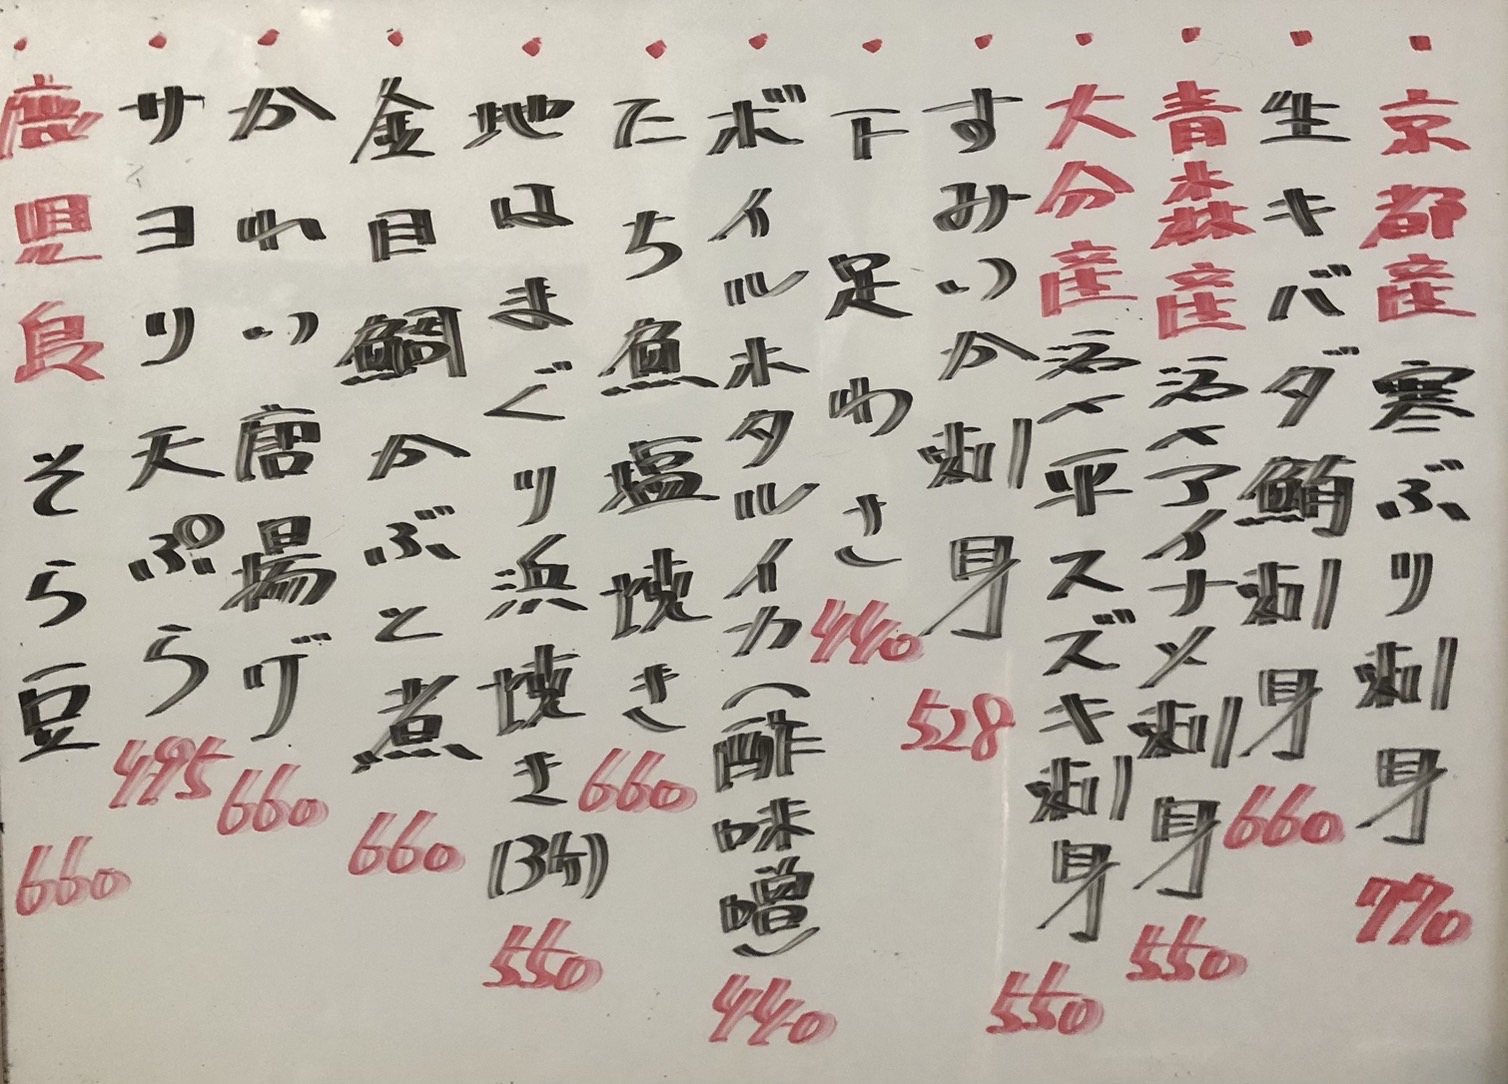 ・京都産寒ぶり刺身 770
・生キバダ鮪刺身 660
・青森産活〆アイナメ刺身 550
・大分産活〆平スズキ刺身 550
・すみいか刺身 528
・下足わさ 440
・ボイルホタルイカ(酢味噌) 440
・たち魚塩焼き 660
・地はまぐり浜焼き(3ケ) 550
・金目鯛かぶと煮 660
・かわい唐揚げ 660
・サヨリ天ぷら 495
・鹿児島そら豆 660